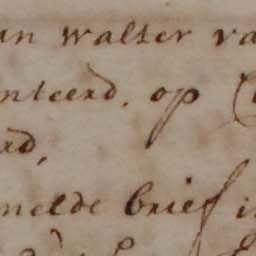 an walter va
nteerd. op
rd,
melde brief i